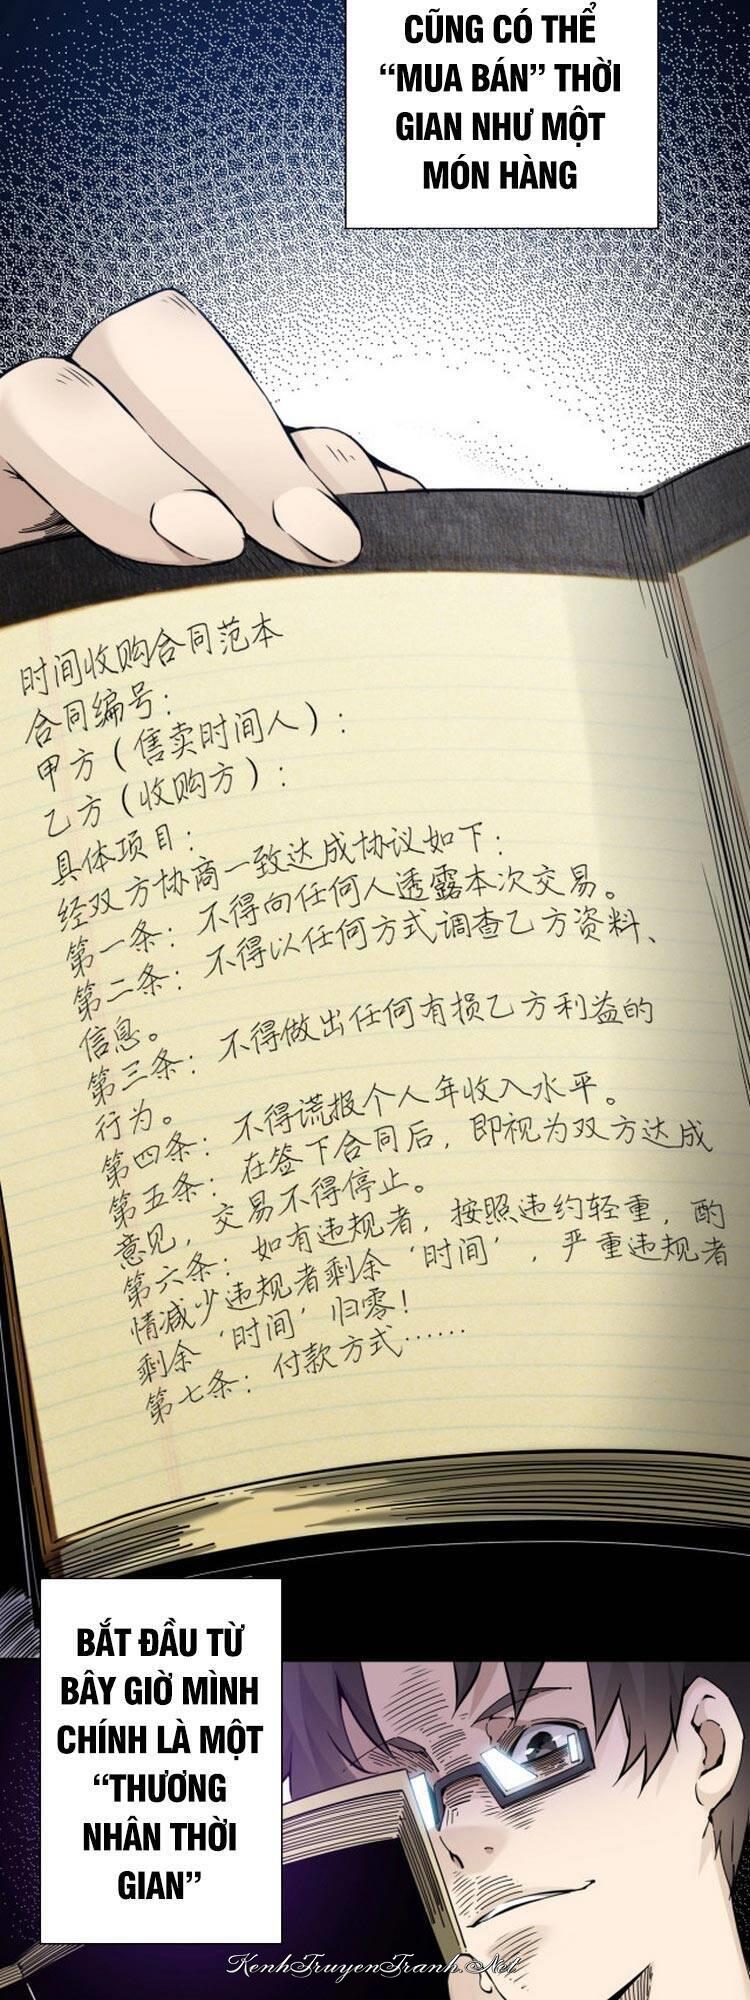 CŨNG CÓ THỂ
“MUA BÁN” THỜI
GIAN NHƯ MỘT
MÓN HÀNG
时间收购合同范本
合同编号:
甲方(售卖时间人):
乙方(收购方):
具体项目:
经双方协商一致达成协议如下:
第一条:不得向任何人透露本次交易。
第二条:不得以任何方式调查乙方资料、
信息。
第三条:不得做出任何有损乙方利益的
行为。
第四条:不得谎报个人年收入水平。
第五条:在签下合同后,即视为双方达成
意见,交易不得停止。
第六条:如有违规者,按照违约轻重,酌
情减少违规者剩余‘时间’,严重违规者
剩余‘时间’归零!
第七条:付款方式……
BẮT ĐẦU TỪ
BÂY GIỜ MÌNH
CHÍNH LÀ MỘT
“THƯƠNG
NHÂN THỜI
GIAN”
KenhTruyenTranh.Net